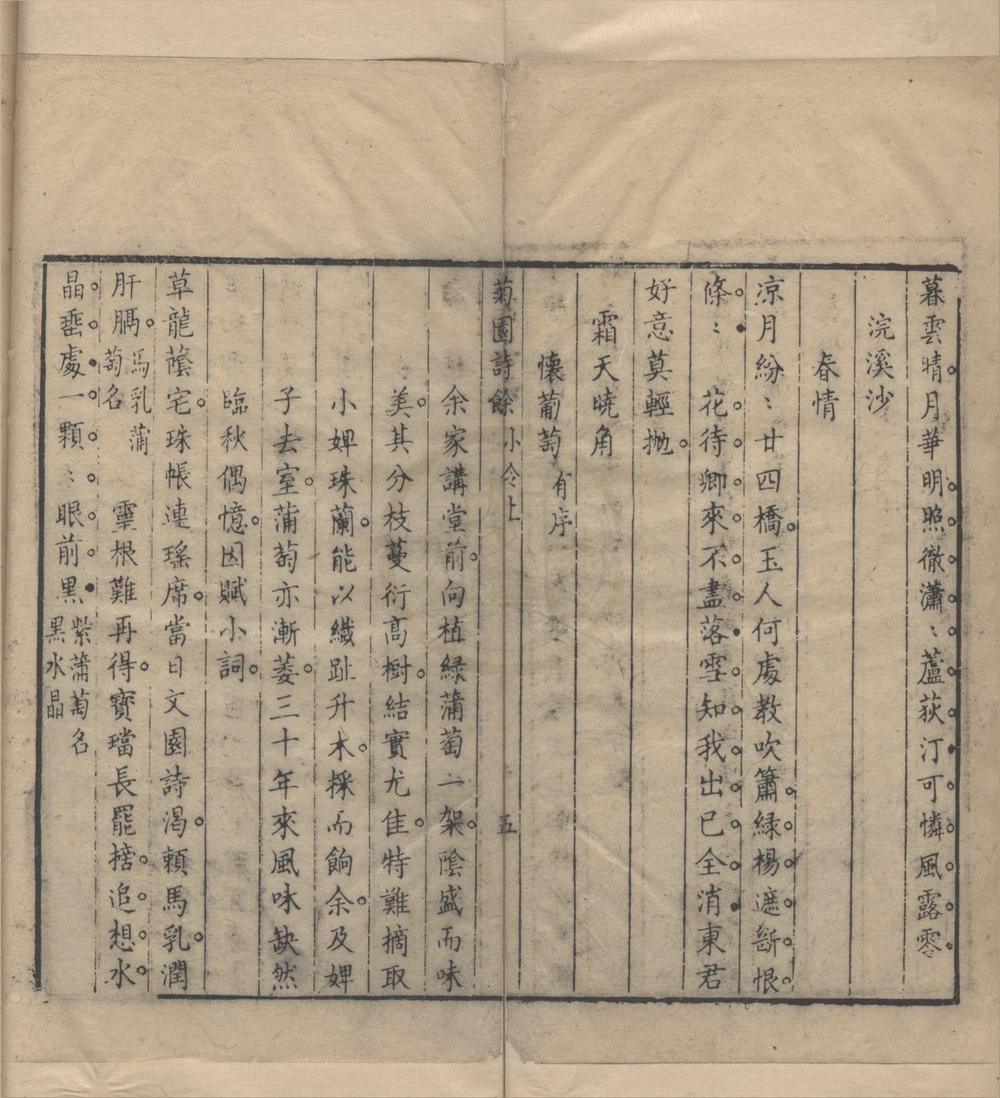 暮雲晴月華明照徹瀟〻蘆荻汀可憐風露零
浣溪沙
春情
涼月紛〻廿四橋玉人何處教吹簫綠楊遮斷恨
條〻　花待卿來不盡落雪知我出已全消東君
好意莫輕拋
霜天曉角
懷葡萄有序
菊園詩餘 小令上 五
余家講堂前向植綠蒲萄一架陰盛而味
美其分枝蔓衍高樹結實尤佳特難摘取
小婢珠蘭能以纖趾升木採而餉余及婢
子去室蒲萄亦漸萎三十年來風味缺然
臨秋偶憶因賦小詞
草龍蔭宅珠帳連瑤席當日文園詩渴賴馬乳潤
肝膈馬乳蒲萄名　靈根難再得寶璫長罷掐追想水
晶垂處一顆〻眼前黑紫蒲萄名黑水晶